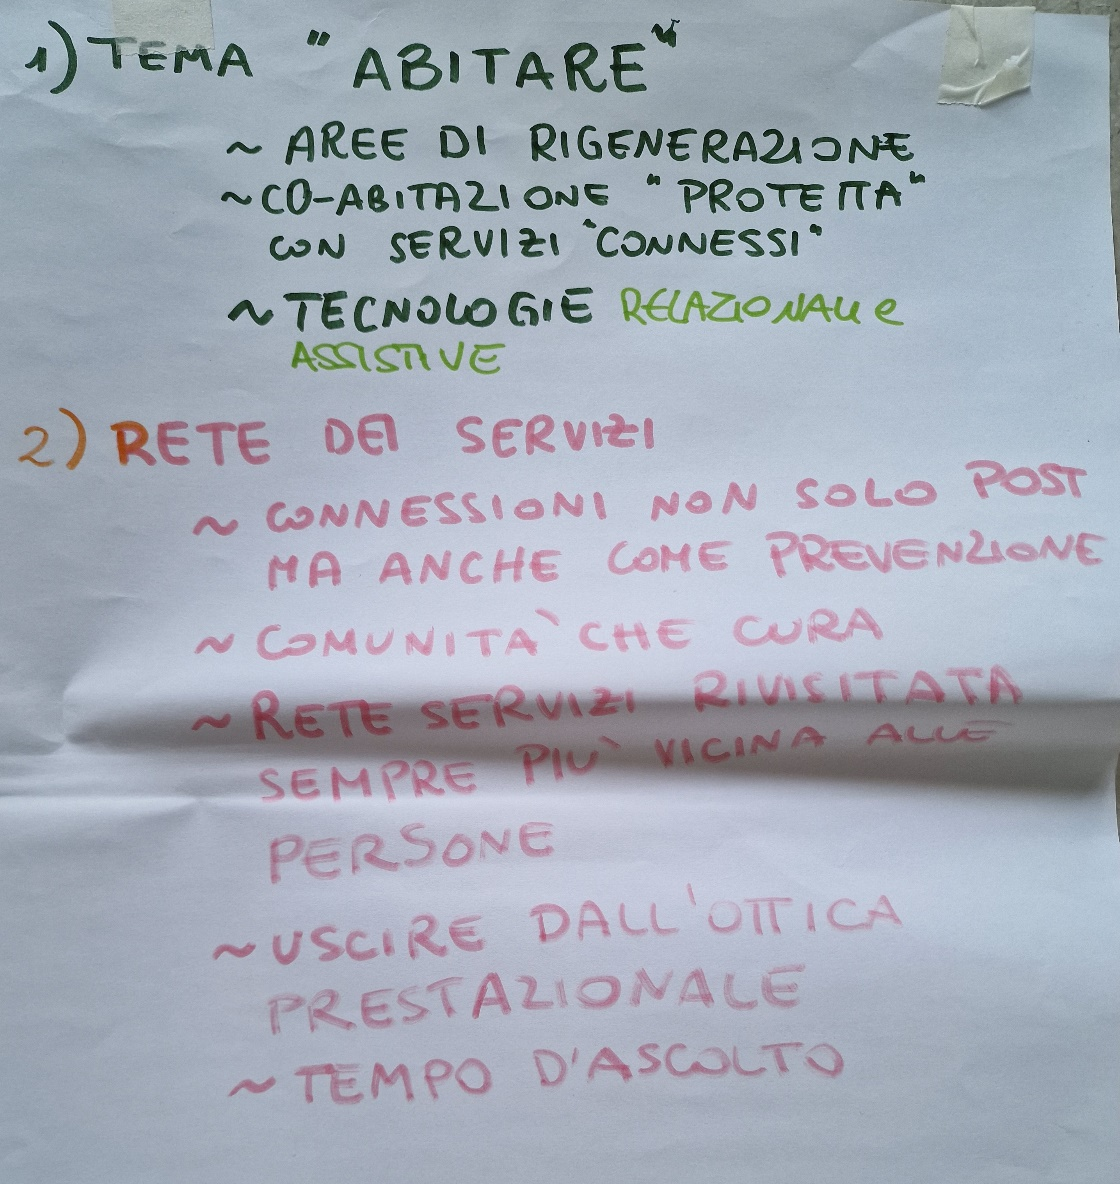 1) TEMA "ABITARE"
~ AREE DI RIGENERAZIONE
~ CO-ABITAZIONE "PROTETTA"
CON SERVIZI "CONNESSI"
~ TECNOLOGIE RELAZIONALI e
ASSISTIVE
2) RETE DEI SERVIZI
~ CONNESSIONI NON SOLO POST
MA ANCHE COME PREVENZIONE
~ COMUNITA' CHE CURA
~ RETE SERVIZI RIVISITATA
SEMPRE PIU' VICINA ALLE
PERSONE
~ USCIRE DALL'OTTICA
PRESTAZIONALE
~ TEMPO D'ASCOLTO